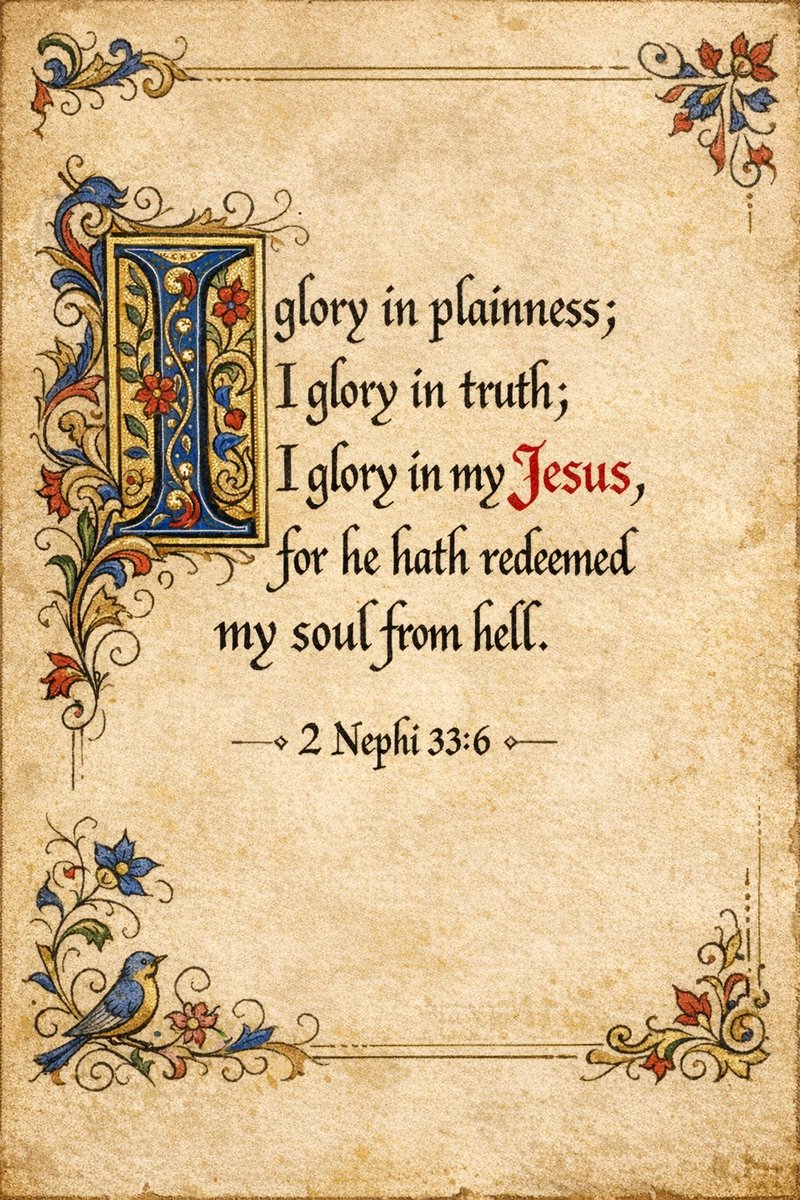 I glory in plainness;
I glory in truth;
I glory in my Jesus,
for he hath redeemed
my soul from hell.
2 Nephi 33:6